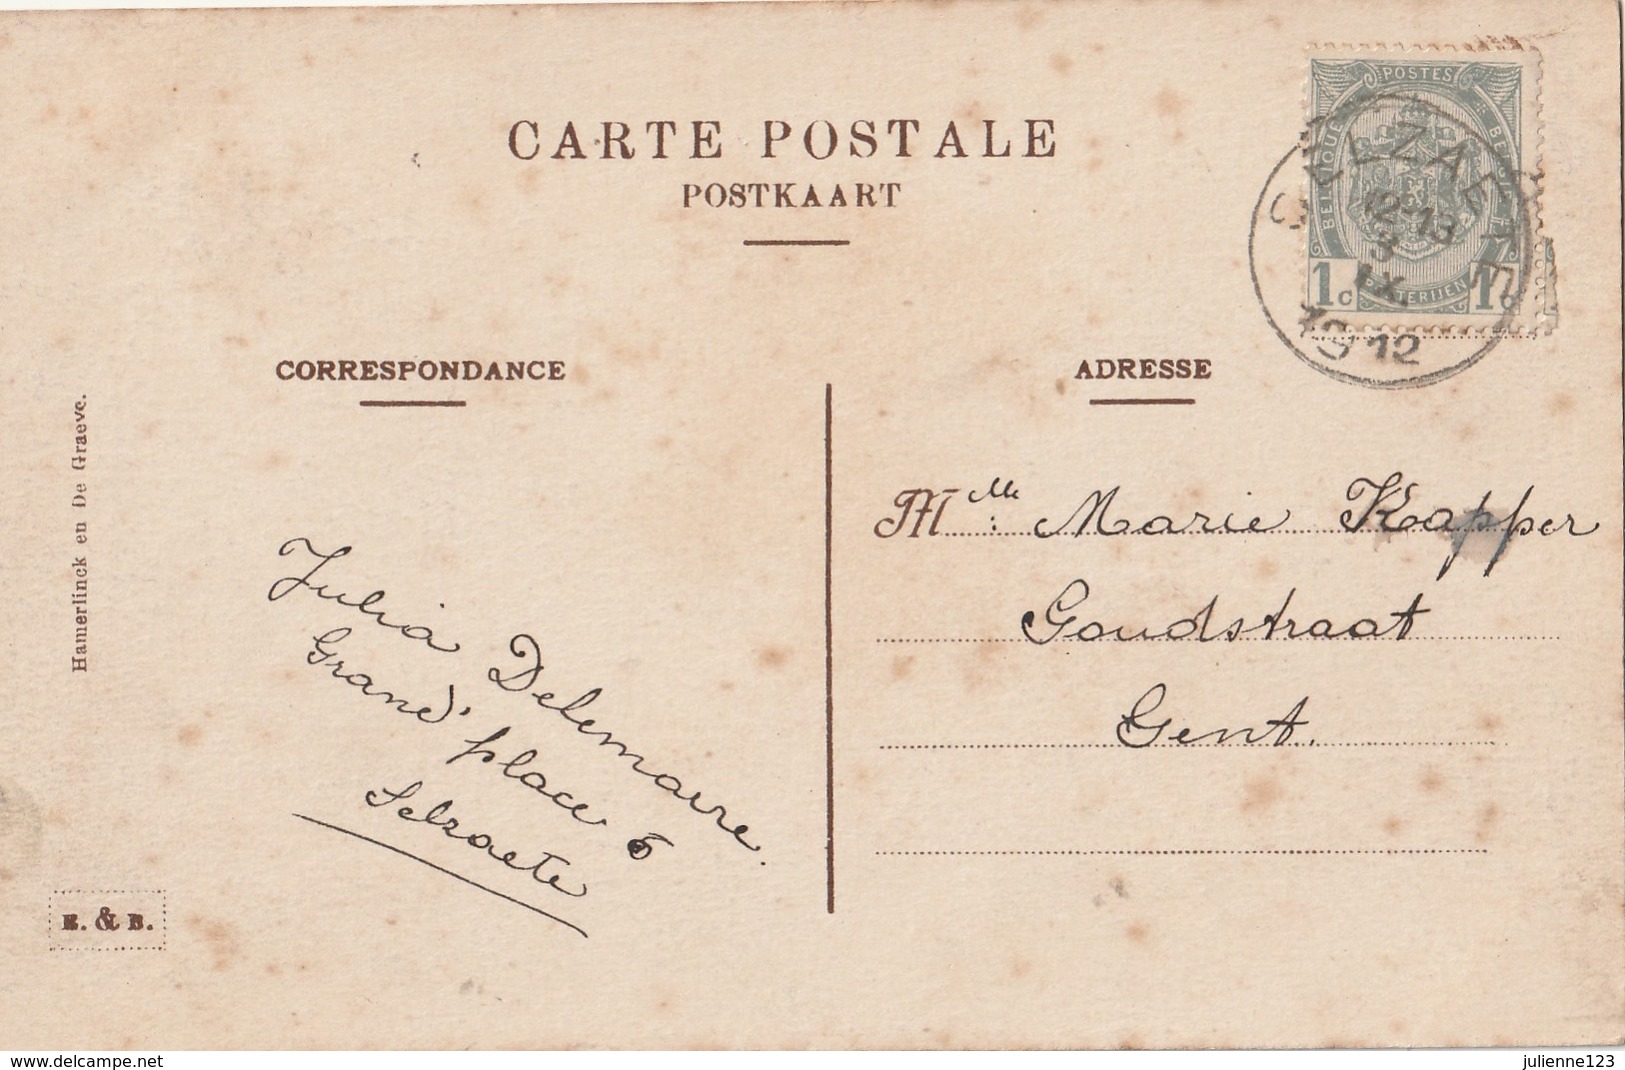 CARTE POSTALE
POSTKAART
POSTES
BELGIQUE
BELGIË
1c
POSTERIJEN
1c
SELZAETE
12-13
3
IX.
1912
CORRESPONDANCE
ADRESSE
Hamerlinck en De Graeve.
Julia Delemaire.
Grand' place 6
Selzaete
Mlle: Marie Kapper
Goudstraat
Gent.
E. & B.
www.delcampe.net
julienne123